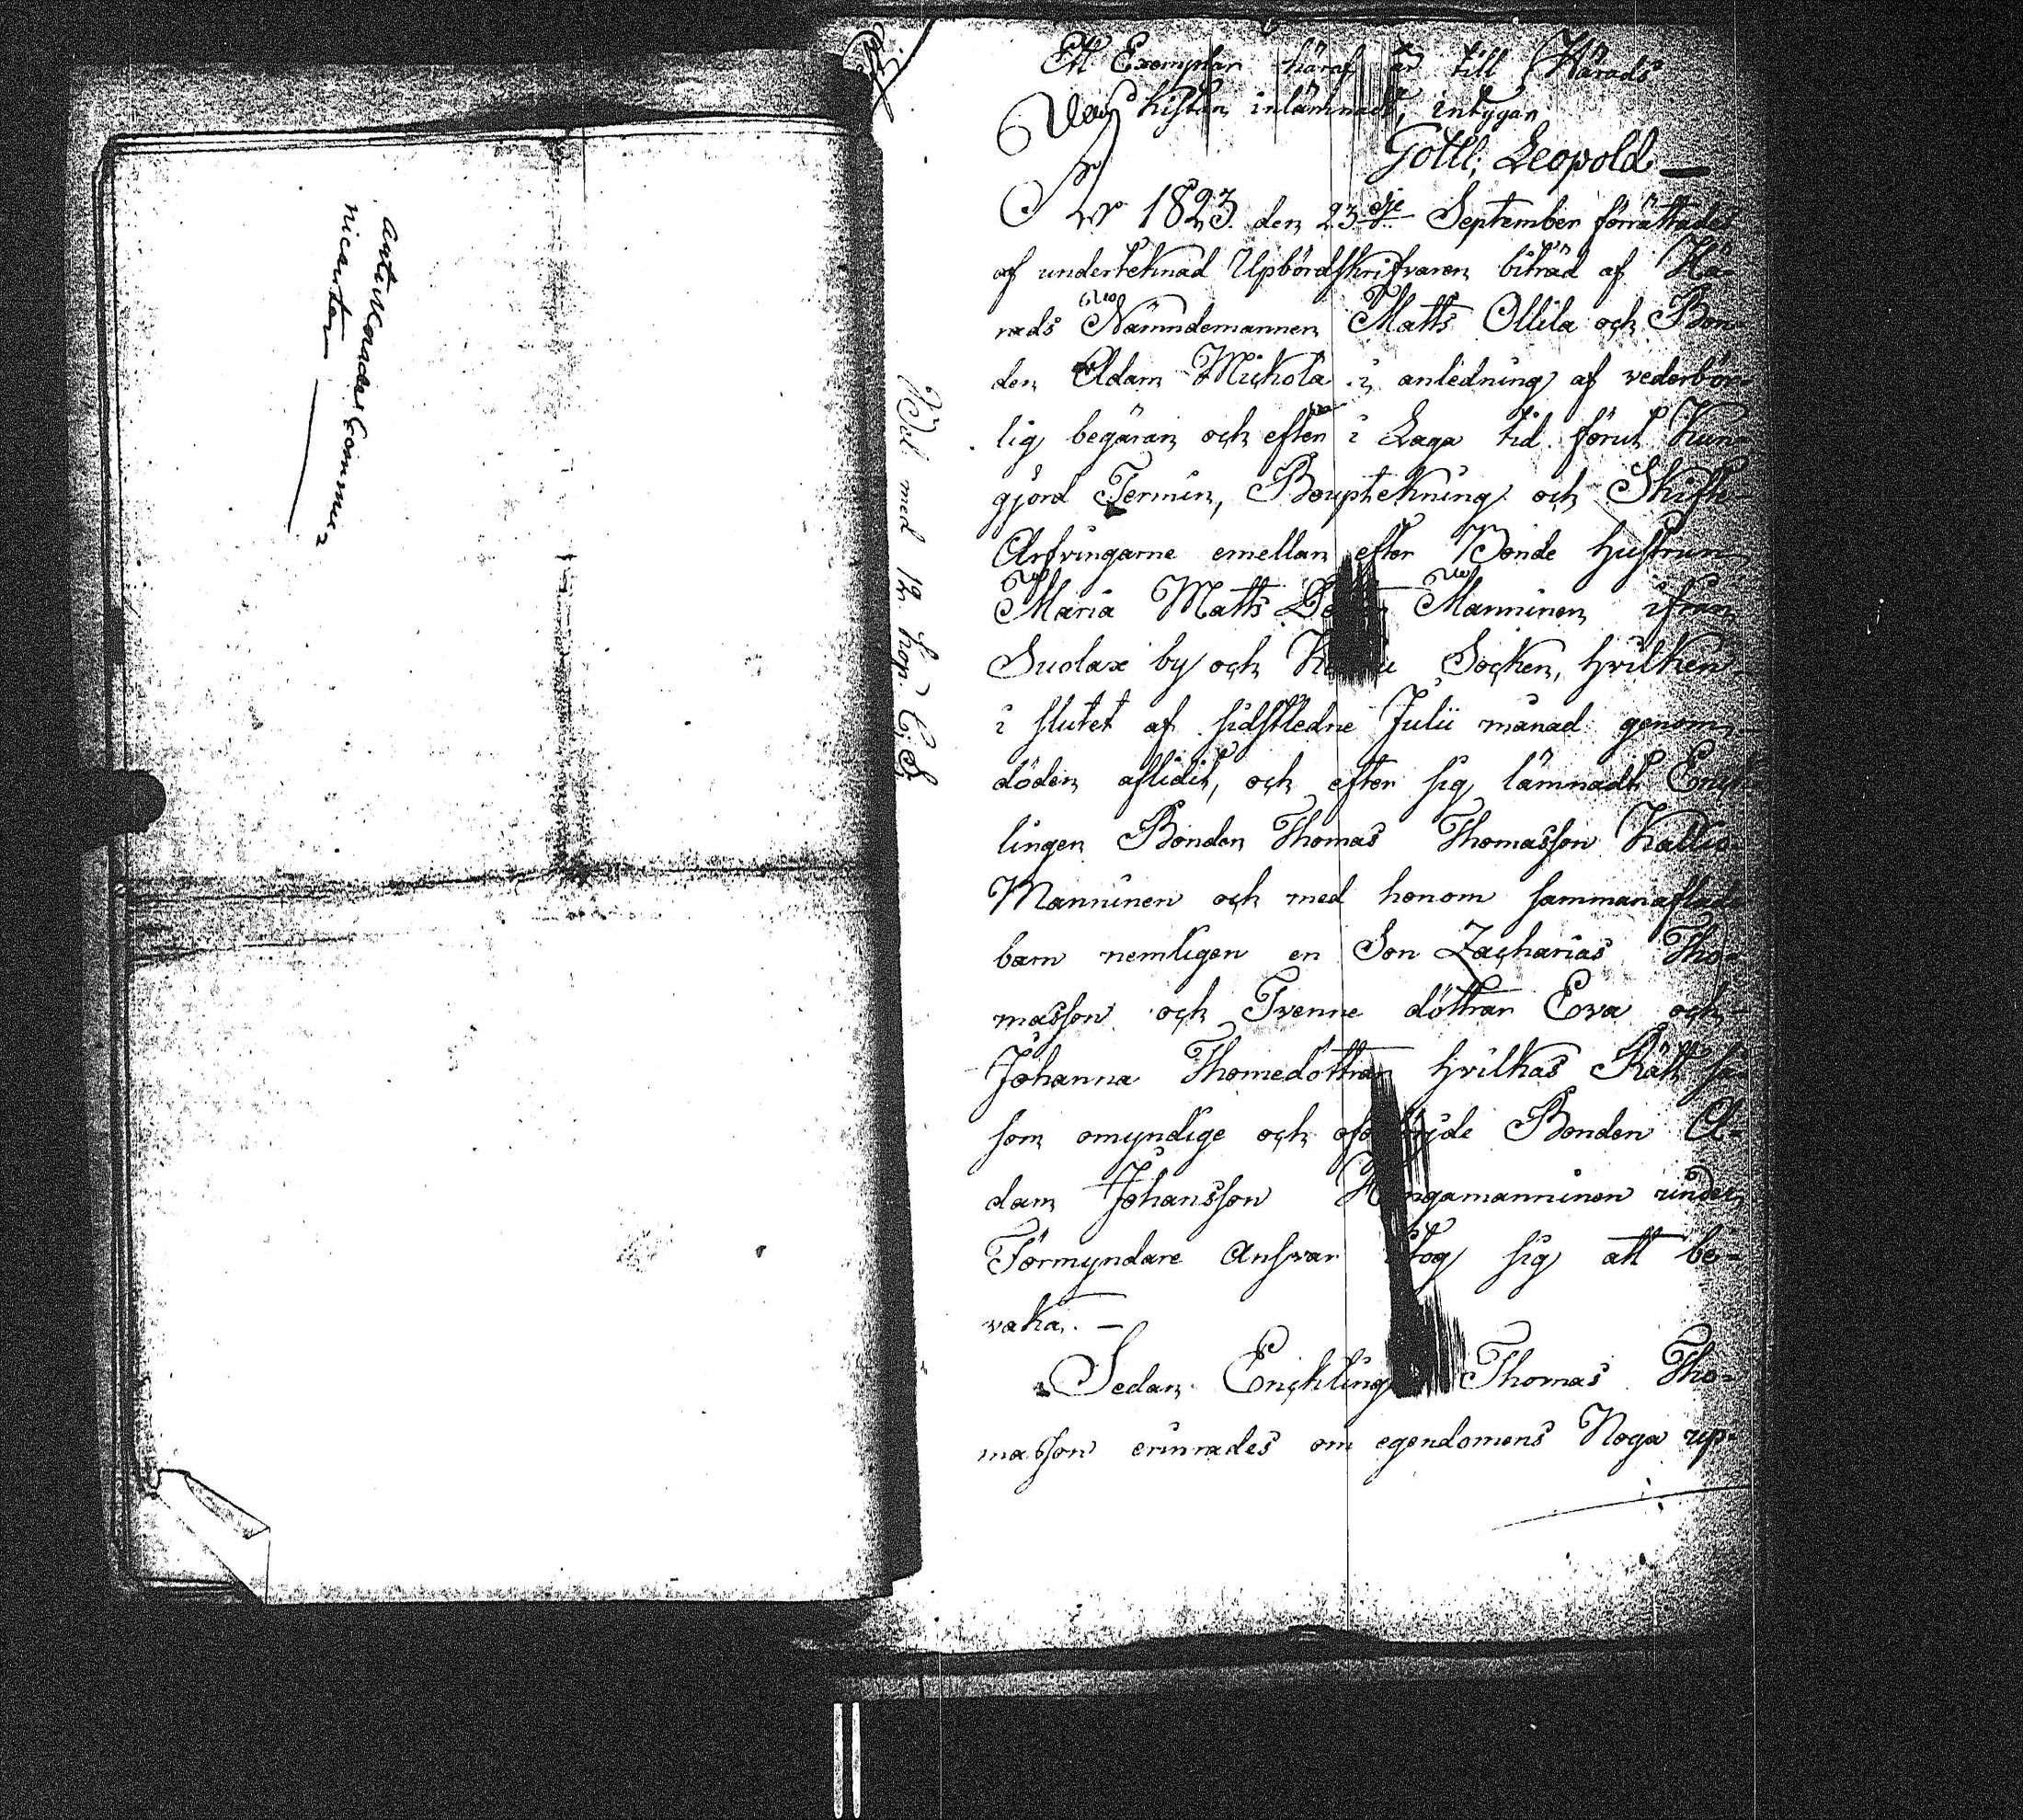 Ett Exemplar häraf är till Härads
kistan inlämnadt, intygar
Gottl. Leopold
År 1823 den 23dje September förrättades
af underteknad Upbördsskrifvaren biträd af Hä-
rads Nämndemannen Matts Ollila och Bon-
den Adam Mickola i anledning af vederbör-
lig begäran och efter i Laga tid förut Kun-
gjord Termin, Bouptekning och Skifte
Arfvingarne emellan efter Bonde hustrun
Maria Matts Manninen ifrån
Suolax by och Socken, hvilken
i slutet af sidstledne Julii månad genom
döden aflidit, och efter sig lämnadt Enck-
lingen Bonden Thomas Thomasson Kallio-
Manninen och med honom sammanaflade
barn nemligen en Son Zacharias Tho-
masson och Tvenne döttrar Eva och
Johanna Thomedöttrar hvilkas Rätt så-
som omyndige och Bonden A-
dam Johansson under
Förmyndare Ansvar tog sig att be-
vaka. —
Sedan Encklingen Thomas Tho-
masson erinrades om egendomens Noga up-
med 12 kop. C. S.